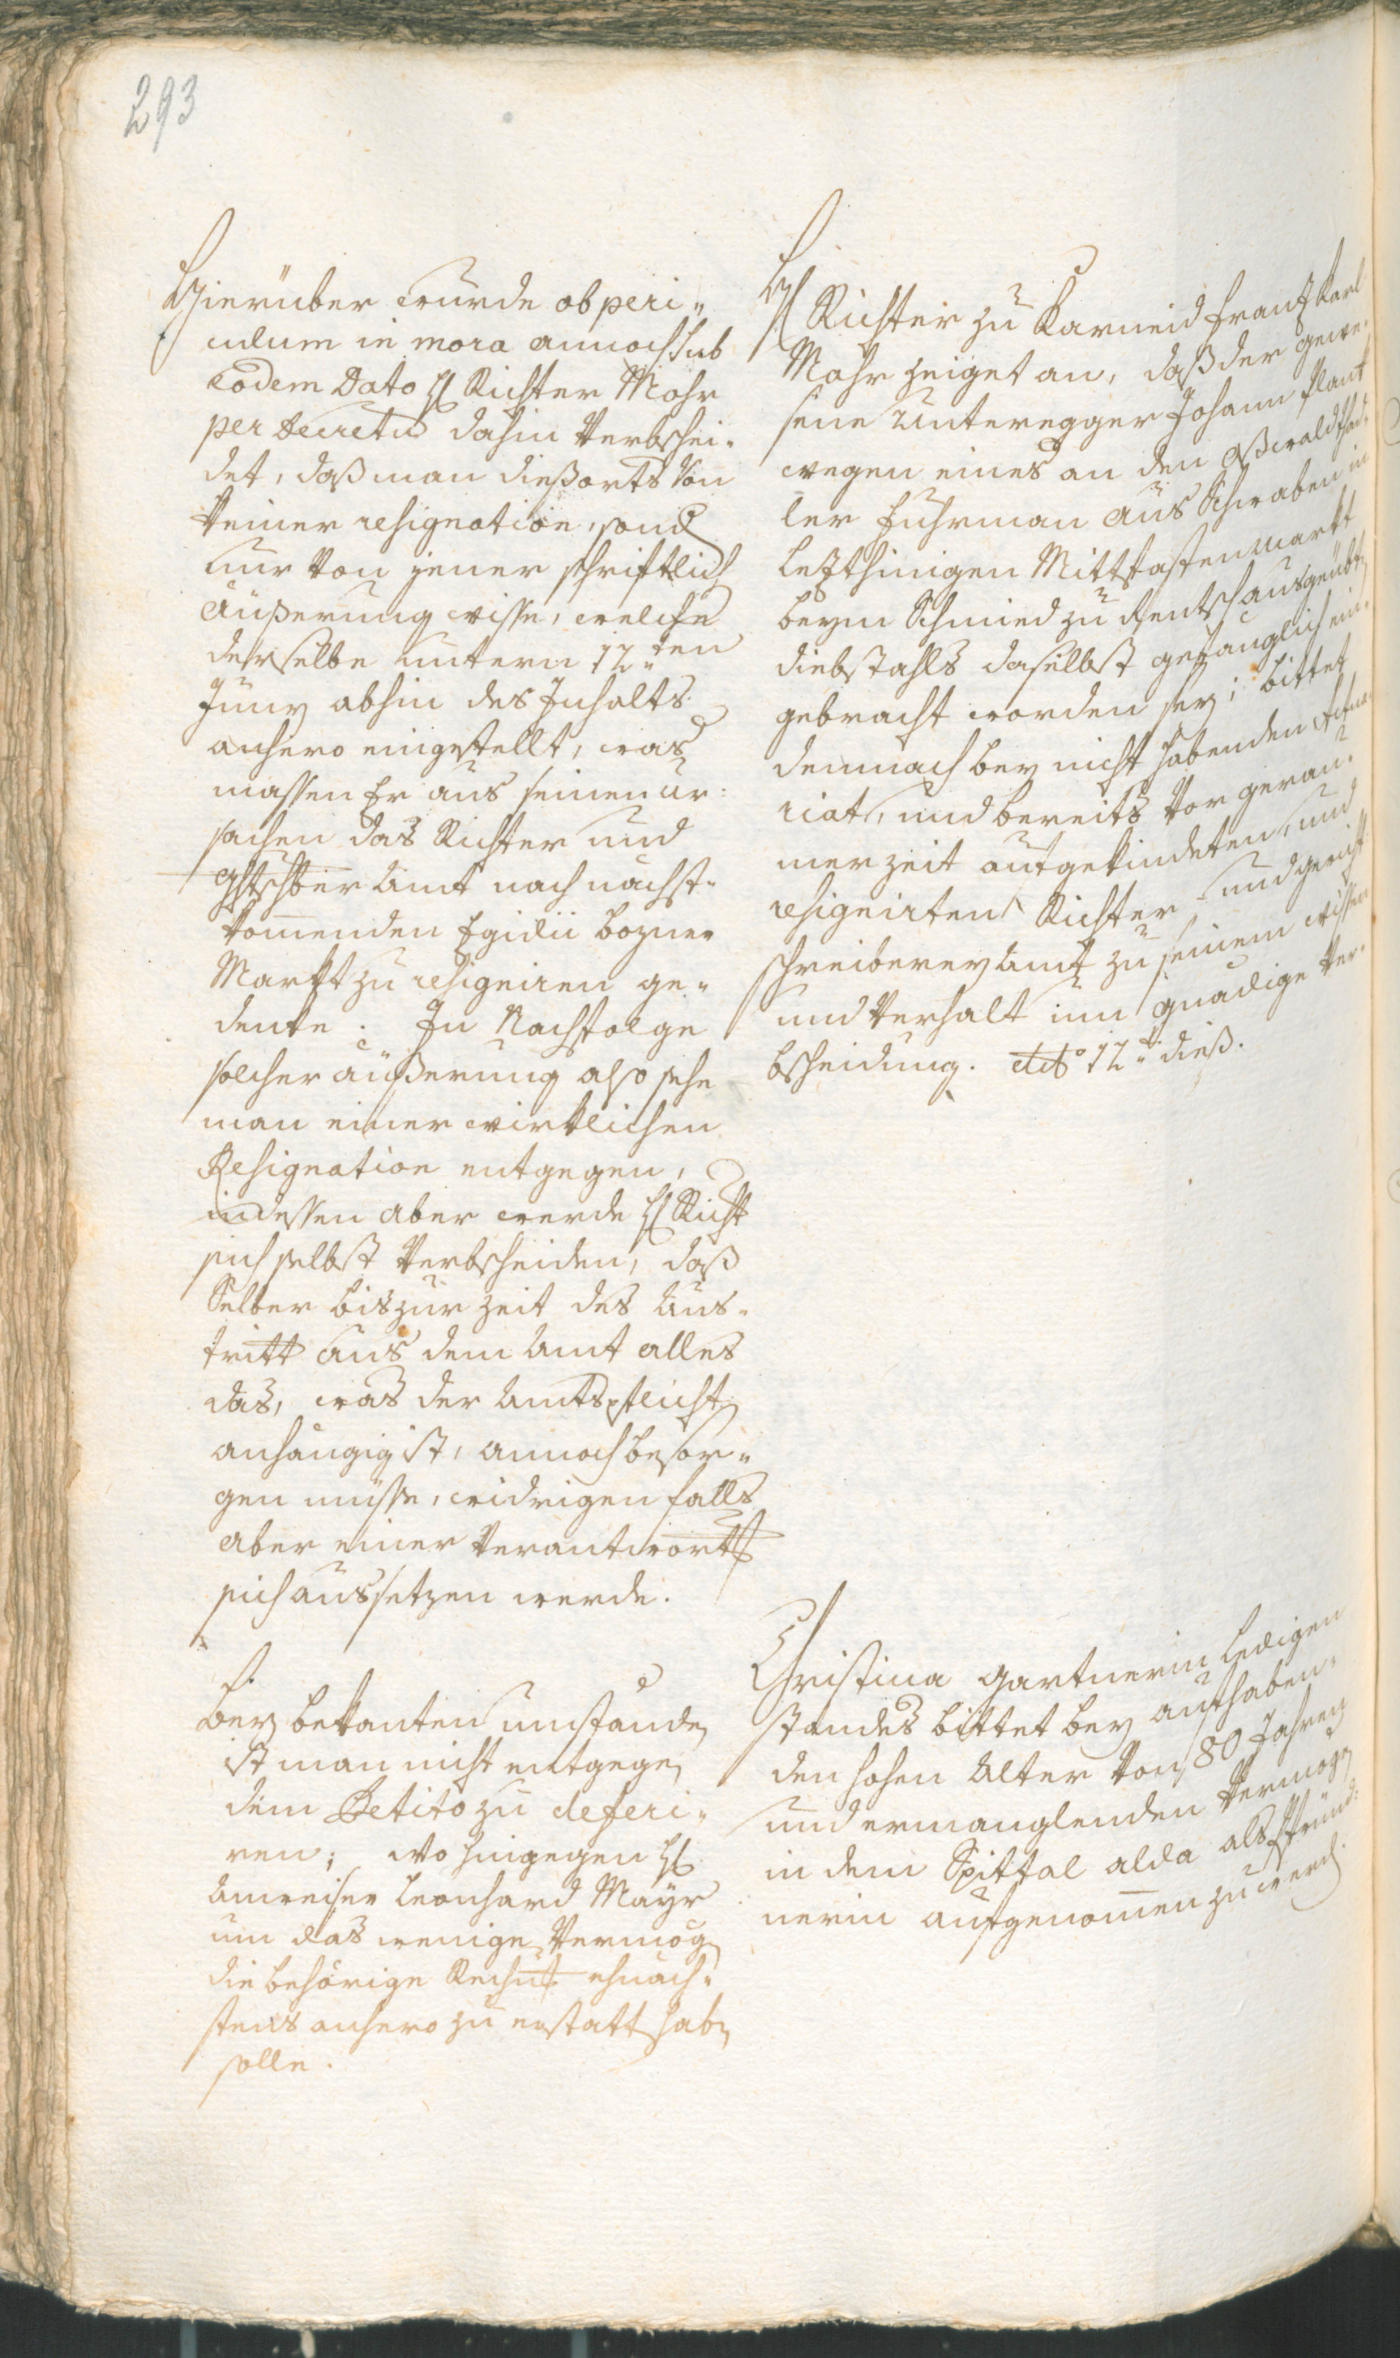 293
Hierüber wurde ob peri„
culum in mora annoch sub
eodem Dato H Richter Mohr
per Decretu dahin Verbschei„
det, daß man dießorts Von
keiner resignation, sond
nur Von jener schriftlich
äußerung wisse, welche
derselbe untern 12.ten
Juny abhin des Inhalts
anhero eingestellt, was
massen Er aus seinen ur:
sachen das Richter und
Amt nach nächst„
komenden Egidii bozner
Markt zu resigniren ge„
denke. In Nachfolge
solcher äußerung also sehe
man einer wirklichen
Resignation entgegen,
indessen aber werde H Richt
sich selbst Verbscheiden, daß
Selber bis zur zeit des Aus„
tritt aus dem Amt alles
das, was der Amtspflicht
anhängig ist, annoch besor„
gen müsse, widrigen falls
aber einer Verantwortt
sich aussetzen werde.
f.
Bey bekanten umstände
ist man nicht entgege
dem Petito zu deferi„
ren; wohingegen H
Anweiser Leonhard Mayr
um das wenige Vermög
die behörige Rechnt ehnäch„
stens anhero zu erstatt hab
solle.
H Richter zu Karneid Frantz Karl
Mohr zeiget an, daß der gewe„
sene Unteregger Johann Plank
wegen eines an den Oßwald
ler fuhrman aus Schwaben in
lezthinigen Mittfastenmarkt
beym Schmied zu Kentsch ausgeübt
diebstahls daselbst gefänglich ein„
gebracht worden sey; bittet
demnach bey nicht habenden Actua
riat, und bereits Vor gerau„
mer zeit aufgekindeten, und
resignirten Richter- und gericht
schreiberey Amt zu seinem wissen
und Verhalt um gnädige Ver„
bscheidung. dtto 12.t dieß.
Christina Gartnerin Ledigen
standes bittet bey aufhaben„
den hohen Alter Von 80 Jahren
und ermanglenden Vermög
in dem Spittal alda als Pfründ„
nerin aufgenomen zu werd.